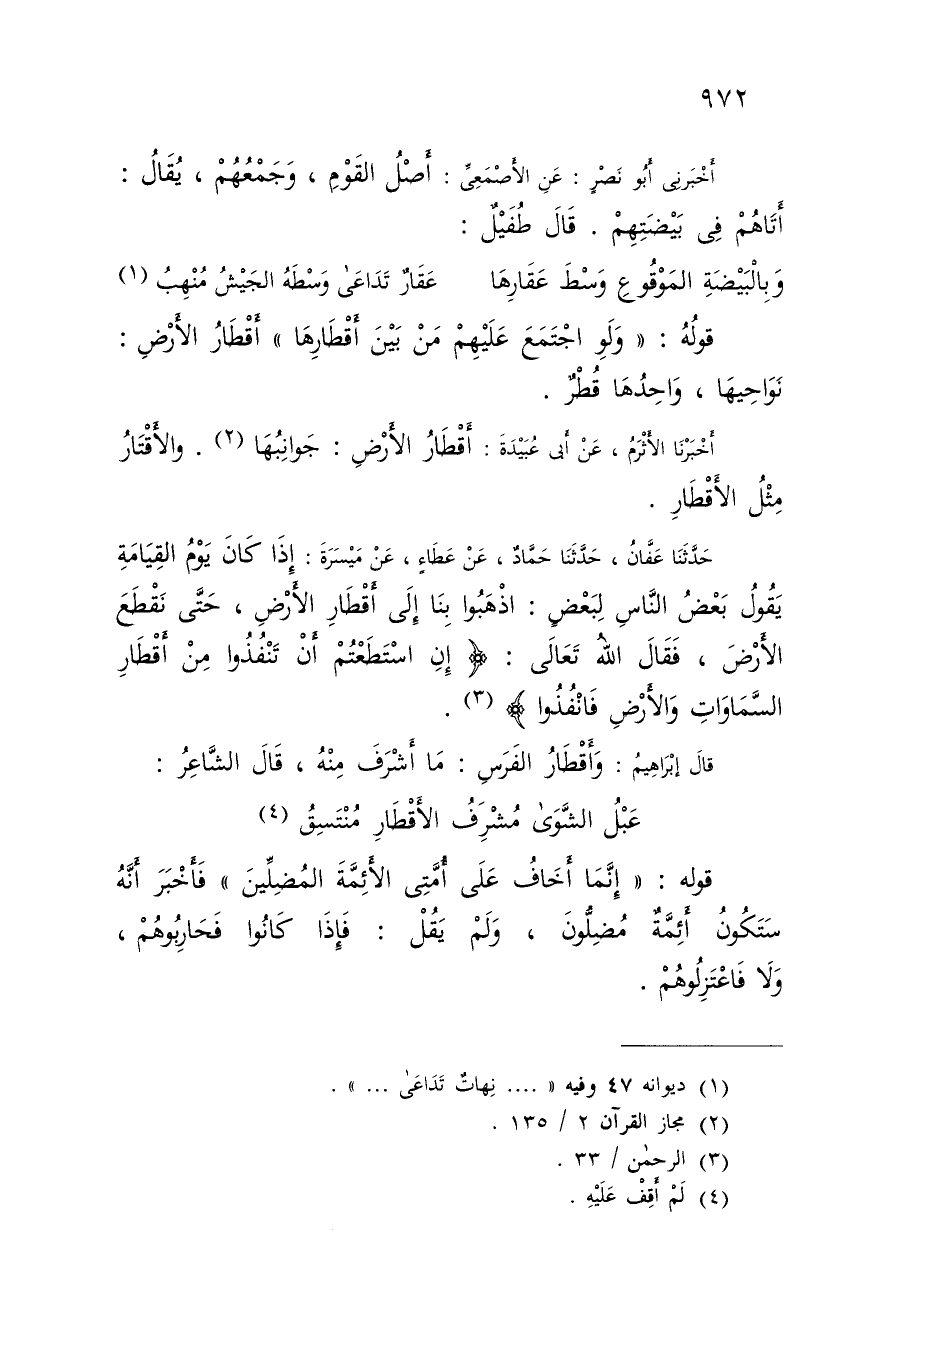 ٩٧٢
أَخْبَرَنِى أَبُو نَصْرٍ : عَنِ الأَصْمَعِىِّ : أَصْلُ القَوْمِ ، وَجَمْعُهُمْ ، يُقَالُ :
أَتَاهُمْ فِى بَيْضَتِهِمْ . قَالَ طُفَيْلٌ :
وَبِالْبَيْضَةِ المَوْقُوعِ وَسْطَ عَقَارِهَا عَقَارٌ تَدَاعَىٰ وَسْطَهُ الجَيْشُ مُنْهِبُ (١)
قولُهُ : « وَلَوِ اجْتَمَعَ عَلَيْهِمْ مَنْ بَيْنَ أَقْطَارِهَا » أَقْطَارُ الأَرْضِ :
نَوَاحِيهَا ، وَاحِدُهَا قُطْرٌ .
أَخْبَرَنَا الأَثْرَمُ ، عَنْ أَبِى عُبَيْدَةَ : أَقْطَارُ الأَرْضِ : جَوانِبُهَا (٢) . والأَقْتَارُ
مِثْلُ الأَقْطَارِ .
حَدَّثَنَا عَفَّانُ ، حَدَّثَنَا حَمَّادٌ ، عَنْ عَطَاءٍ ، عَنْ مَيْسَرَةَ : إِذَا كَانَ يَوْمُ القِيَامَةِ
يَقُولُ بَعْضُ النَّاسِ لِبَعْضٍ : اذْهَبُوا بِنَا إِلَى أَقْطَارِ الأَرْضِ ، حَتَّى نَقْطَعَ
الأَرْضَ ، فَقَالَ اللهُ تَعَالَى : ﴿ إِنِ اسْتَطَعْتُمْ أَنْ تَنْفُذُوا مِنْ أَقْطَارِ
السَّمَاوَاتِ وَالأَرْضِ فَانْفُذُوا ﴾ (٣) .
قالَ إِبْرَاهِيمُ : وَأَقْطَارُ الفَرَسِ : مَا أَشْرَفَ مِنْهُ ، قَالَ الشَّاعِرُ :
عَبْلُ الشَّوَىٰ مُشْرِفُ الأَقْطَارِ مُنْتَسِقُ (٤)
قوله : « إِنَّمَا أَخَافُ عَلَى أُمَّتِى الأَئِمَّةَ المُضِلِّينَ » فَأَخْبَرَ أَنَّهُ
سَتَكُونُ أَئِمَّةٌ مُضِلُّونَ ، وَلَمْ يَقُلْ : فَإِذَا كَانُوا فَحَارِبُوهُمْ ،
وَلَا فَاعْتَزِلُوهُمْ .
(١) ديوانه ٤٧ وفيه « .... نِهابٌ تَدَاعَىٰ ... » .
(٢) مجاز القرآن ٢ / ١٣٥ .
(٣) الرحمٰن / ٣٣ .
(٤) لَمْ أَقِفْ عَلَيْهِ .